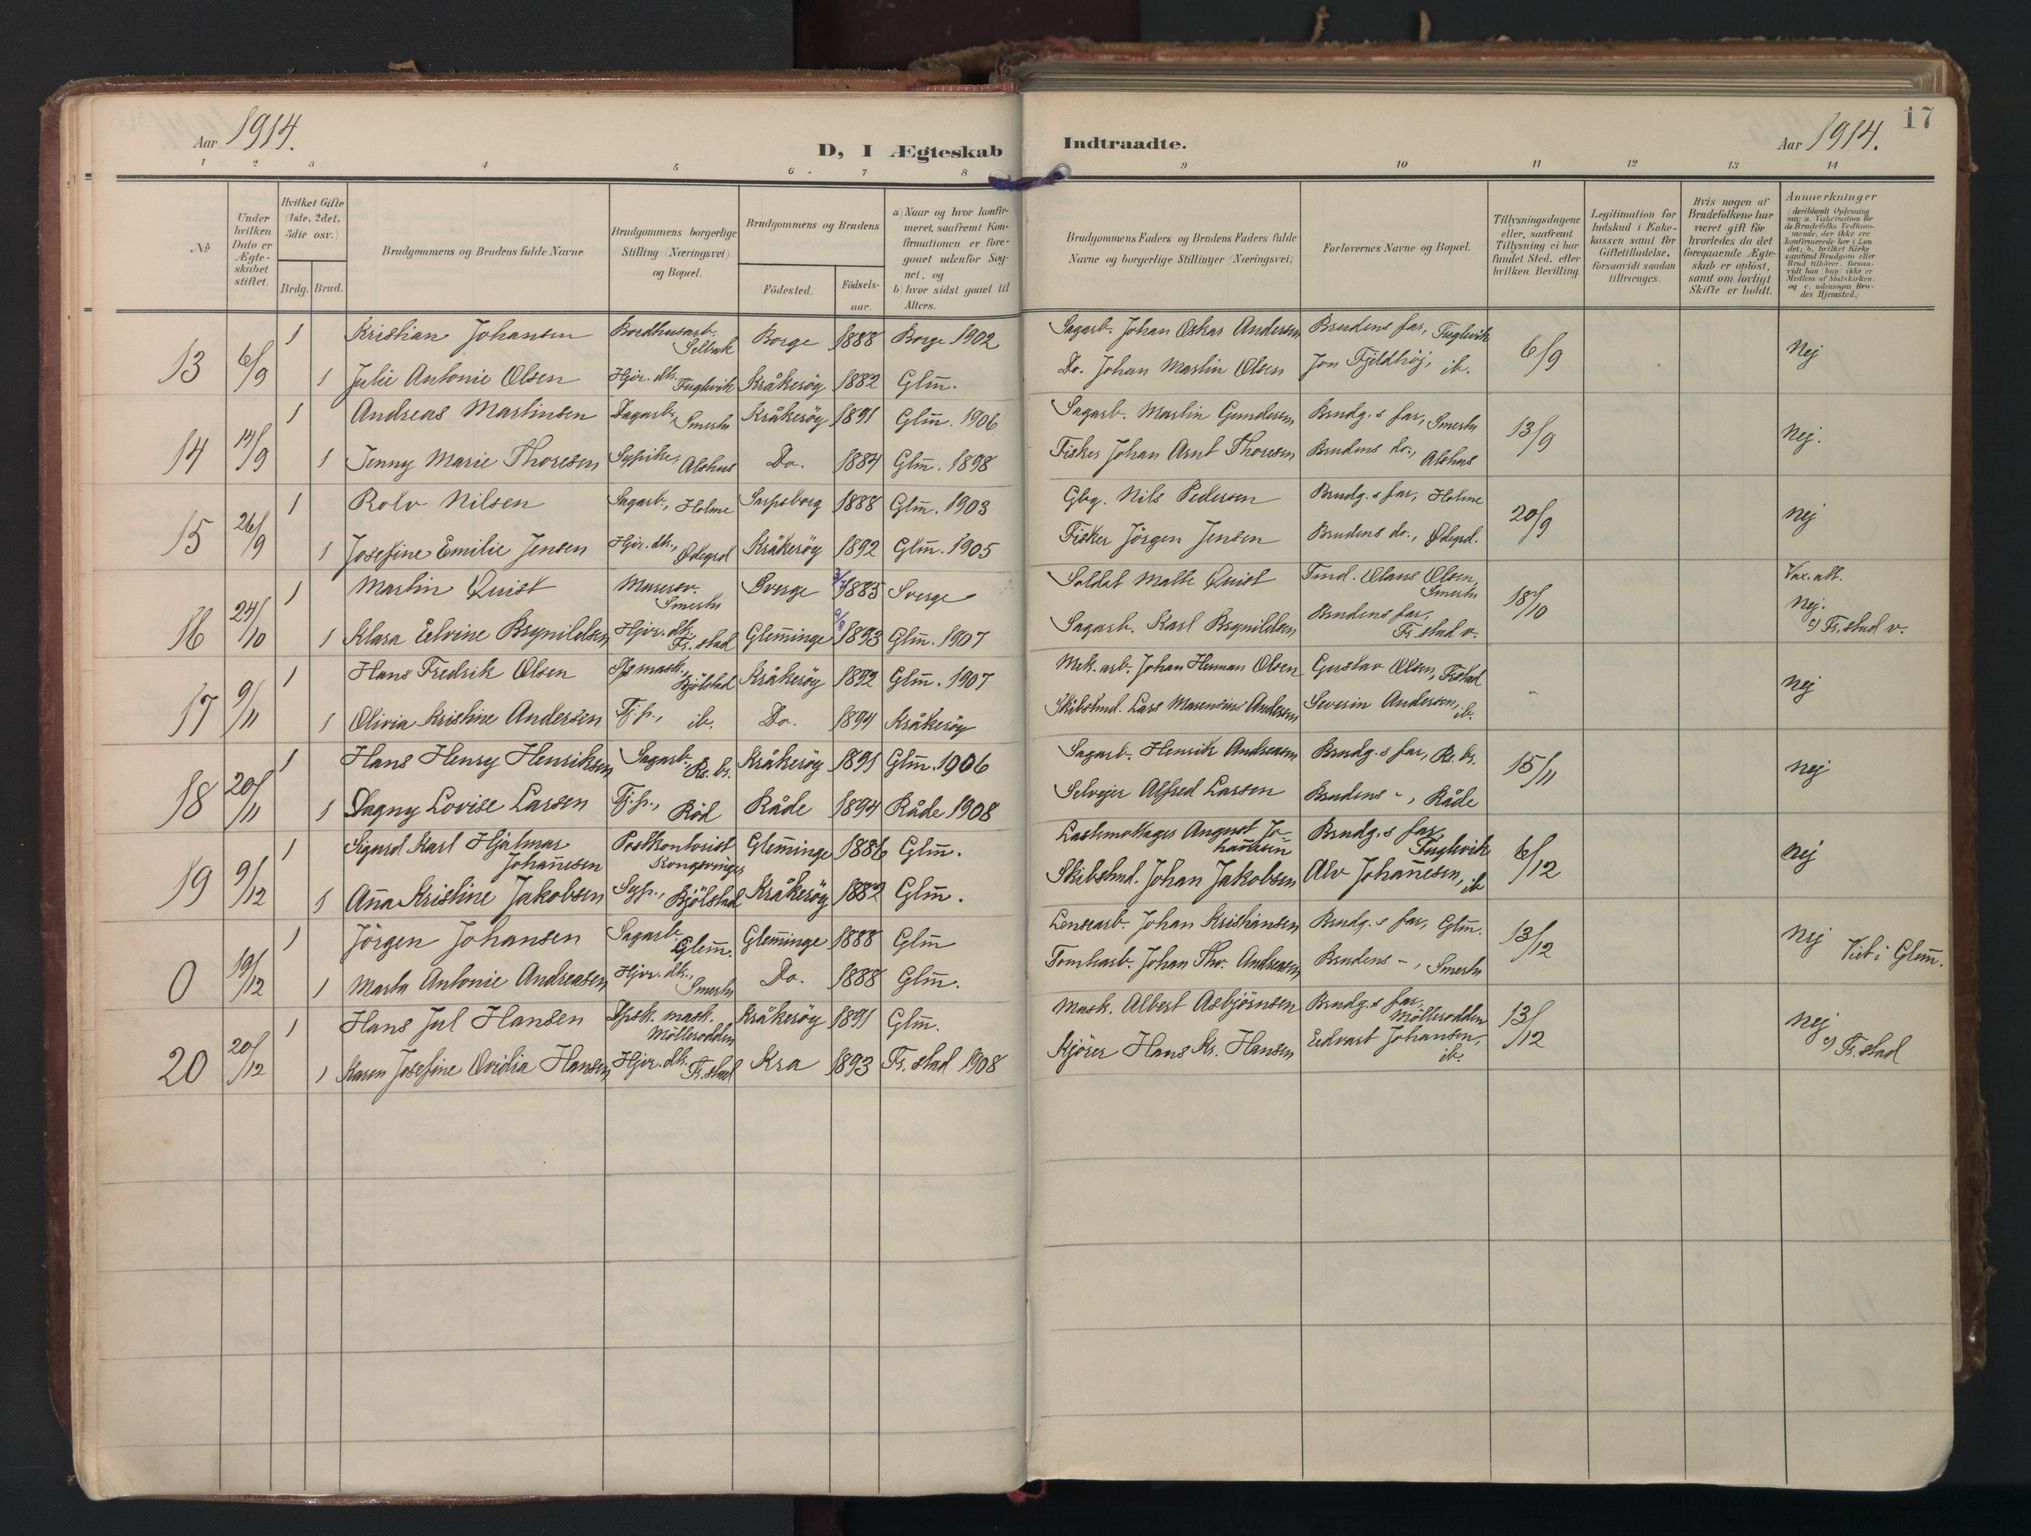 17
Aar 1914.
D, I Ægteskab Indtraadte.
Aar 1914.
1 2 3 4 5 6. 7 8 9 10 11 12 13 14
No
Under hvilken Dato er Ægteskabet stiftet.
Hvilket Gifte (1ste, 2det, 3die osv.)
Brdg. Brud.
Brudgommens og Brudens fulde Navne
Brudgommens borgerlige Stilling (Næringsvei) og Bopæl.
Brudgommens og Brudens
Fødested.
Fødselsaar.
a) Naar og hvor konfirmeret, saafremt Konfirmationen er foregaaet udenfor Sognet, og
b) hvor sidst gaaet til Alters.
Brudgommens Faders og Brudens Faders fulde Navne og borgerlige Stillinger (Næringsvei)
Forlovernes Navne og Bopæl.
Tillysningsdagene eller, saafremt Tillysning ei har fundet Sted, efter hvilken Bevilling.
Legitimation for Indskud i Enkekassen samt for Giftetilladelse, forsaavidt saadan tiltrænges.
Hvis nogen af Brudefolkene har været gift før hvorledes da det foregaaende Ægteskab er opløst, samt om lovligt Skifte er holdt.
Anmærkninger
(deriblandt Oplysning om: a. Vakcination for de Brudefolks Vedkommende, der ikke ere konfirmerede her i Landet; b. hvilket Kirkesamfund Brudgom eller Brud tilhører, forsaavidt han (hun) ikke er Medlem af Statskirken, og c. udensogns Brudes Hjemsted.)
13 6/9 1 Kristian Johansen Bordhusarb. Selbak Borge 1888 Borge 1902 Sagarb. Johan Oskar Andersen Brudens far, Fuglevik 6/9 Nej
1 Julie Antonie Olsen Hjv. dtr. Fuglevik Kråkerøy 1882 Glm̄. Do. Johan Martin Olsen Jon Fjeldhøj, ib.
14 14/9 1 Andreas Martinsen Dagarb., Smertu Kråkerøy 1891 Glm̄. 1906 Sagarb. Martin Gundersen Brudg.s far, Smertu 13/9 Nej.
1 Jenny Marie Thoresen Sypike, Alshus Do. 1884 Glm̄. 1898 Fisker Johan Arnt Thoresen Brudens do., Alshus
15 26/9 1 Rolv Nilsen Sagarb., Holme Sarpsborg 1888 Glm̄. 1903 Gbg. Nils Pedersen Brudg.s far, Holme 20/9 Nej
1 Josefine Emilie Jensen Hjv. dtr., Ødegrd Kråkerøy 1892 Glm̄. 1905 Fisker Jörgen Jensen Brudens do., Ødegrd.
16 24/10 1 Martin Quist Smertu Sverge 1883 Sverge Soldat Malte Quist Olaus Olsen, Smertu 18/10 Vax. att.
Nej.
1 Klara Edvine Brynildsen Hjv. dtr. Fr.stad Glem̄inge 1893 Glm̄. 1907 Sagarb. Karl Brynildsen Brudens far, Fr.stad v. c) Fr.stad v.
17 9/11 1 Hans Fredrik Olsen Bjölstad Kråkerøy 1892 Glm̄. 1907 Mek. arb. Johan Herman Olsen Gustav Olsen, Frstad " Nej
1 Olivia Kristine Andersen Tj.p., ib. Do. 1894 Kråkerøy Skibstmd. Lars Marensius Andersen Severin Andersen, ib.
18 20/11 1 Hans Henry Henriksen Sagarb., Rs. br. Kråkerøy 1891 Glm̄. 1906 Sagarb. Henrik Andreasen Brudg.s far, Rs. br. 15/11 Nej
1 Dagny Lovise Larsen Tj.p., Röd Råde 1894 Råde 1908 Selvejer Alfred Larsen Brudens -, Råde
19 9/12 1 Sigurd Karl Hjalmar Johañesen Postkontorist Kongsvinger Glem̄inge 1886 Glm̄. Lastemottager August Johañsen Brudg.s far, Fuglevik 6/12 Nej
1 Añna Kristine Jakobsen Syp., Bjölstad Kråkerøy 1882 Glm̄. Skibstmd. Johan Jakobsen Alv Johañesen, ib
0 19/12 1 Jörgen Johansen Sagarb. Glem̄. Glem̄inge 1888 Glm̄ Lensearb. Johan Kristiansen Brudg.s far, Glm̄. 13/12 Nej Viet i Glem̄.
1 Marta Antonie Andreasen Hjv. dtr., Smertu Do. 1888 Glm̄. Tomtearb. Johan Th. Andreasen Brudens -, Smertu
20 20/12 1 Hans Jul Hansen mask. Möllerodden Kråkerøy 1891 Glm̄. Mask. Albert Asbjörnsen Brudg.s far, Möllerodden 13/12 Nej
1 Karen Josefine Ovidia Hansen Hjv. dtr. Fr.stad Kra 1893 Fr.stad 1908 Kjörer Hans Kr. Hansen Edvart Johansen, ib. c) Fr.stad